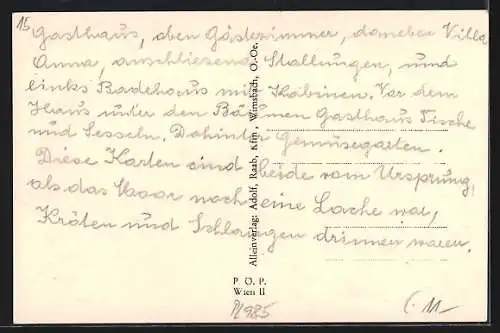 15
Gasthaus, oben Gästezimmer, daneben Villa
Anna, anschliessend Stallungen, und
links Badehaus mit Kabinen. Vor dem
Haus unter den Bäumen Gasthaus Tische
und Sesseln. Dahinter Gemüsegarten.
Diese Karten sind beide vom Ursprung,
als das Moor noch eine Lache war,
Kröten und Schlangen drinnen waren.
Alleinverlag: Adolf, Raab, Kfm., Wimsbach, O.-Oe.
P. O. P.
Wien II